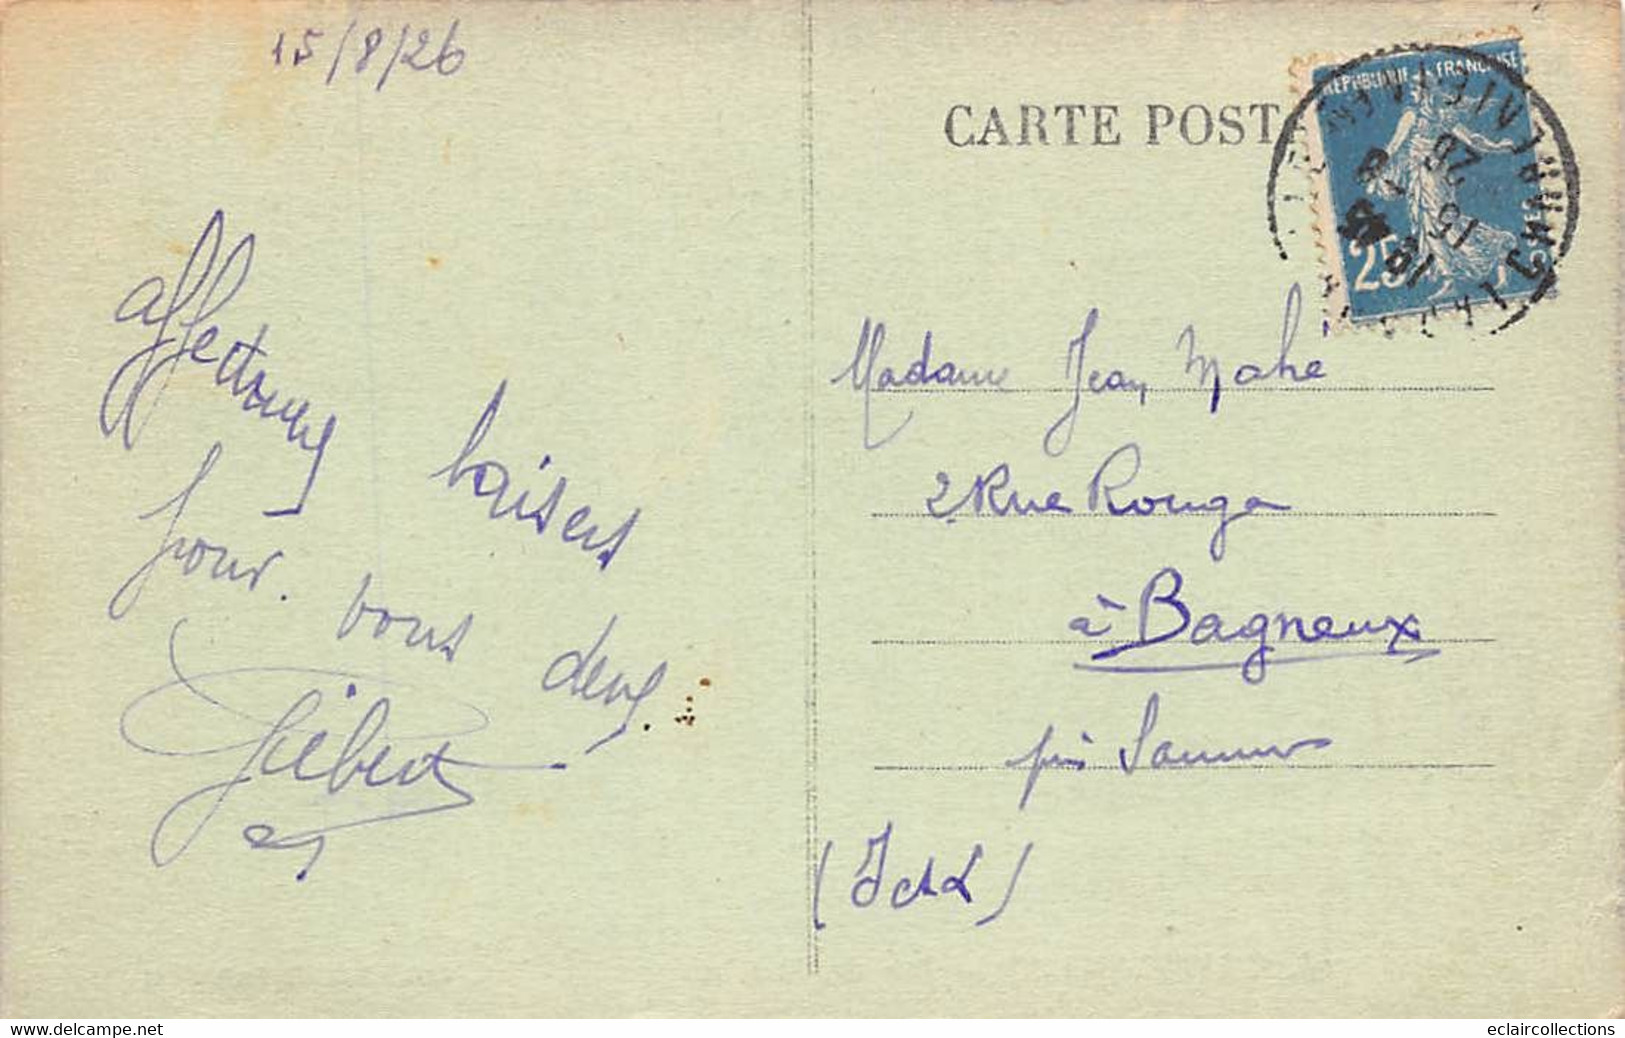 15/8/26
CARTE POST
REPUBLIQUE FRANCAISE
25
15
26
affectueux baisers
pour vous deux
Gilbert
Madame Jean Mahe
2 Rue Rouga
à Bagneux
près Saumur
(I et L)
www.delcampe.net
eclaircollections